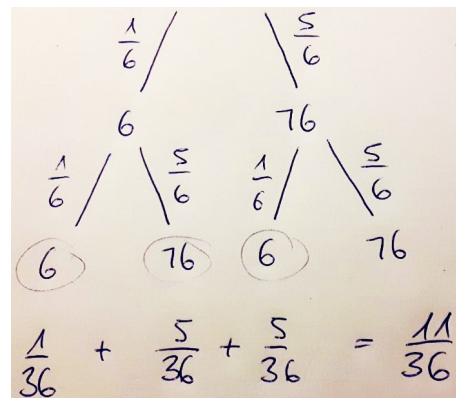 1/6 5/6
6 76
1/6 5/6 1/6 5/6
6 76 6 76
1/36 + 5/36 + 5/36 = 11/36